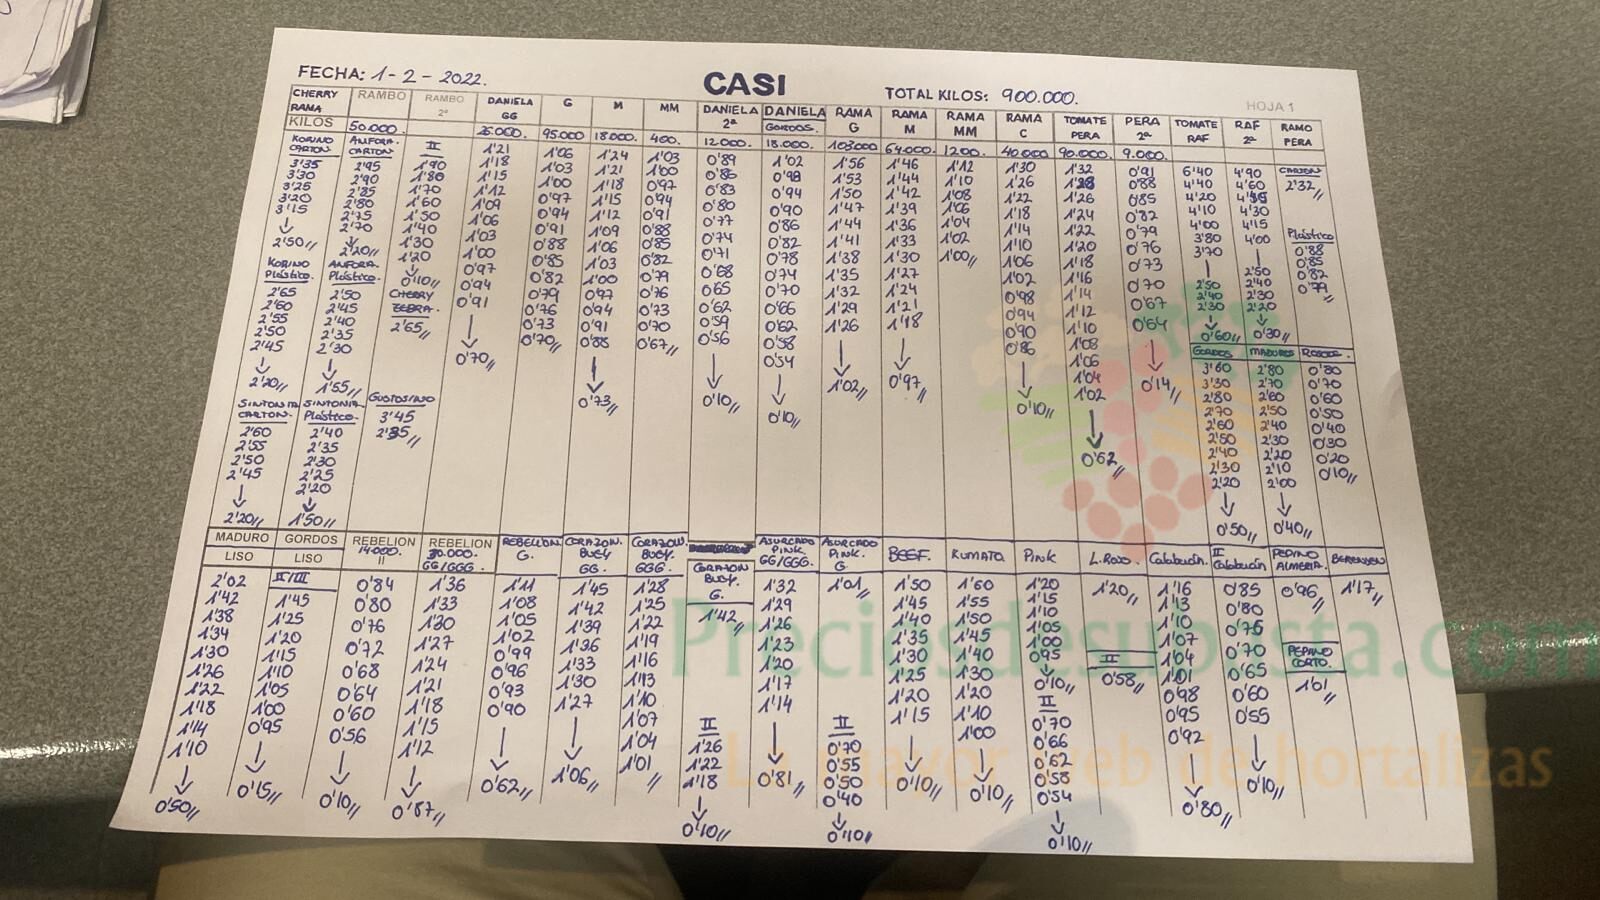 FECHA: 1-2-2022. CASI TOTAL KILOS: 900.000. HOJA 1
CHERRY RAMA RAMBO RAMBO 2ª DANIELA GG G M MM DANIELA 2ª DANIELA GORDOS. RAMA G RAMA M RAMA MM RAMA C TOMATE PERA PERA 2ª TOMATE RAF RAF 2ª RAMO PERA
KILOS 50.000. 25.000. 95.000 18.000. 400. 12.000. 18.000. 103000 64.000. 1200. 40.000 90.000. 9.000.
KORINO CARTON
3'35
3'30
3'25
3'20
3'15
↓
2'50//
KORINO Plástico.
2'65
2'60
2'55
2'50
2'45
↓
2'20//
SINTONIA CARTON.
2'60
2'55
2'50
2'45
↓
2'20//
ANFORA CARTON
2'95
2'90
2'85
2'80
2'75
2'70
↓
2'20//
ANFORA Plástico.
2'50
2'45
2'40
2'35
2'30
↓
1'65//
SINTONIA Plástico.
2'40
2'35
2'30
2'25
2'20
↓
1'50//
II
1'90
1'80
1'70
1'60
1'50
1'40
1'30
1'20
↓
0'10//
CHERRY ZEBRA.
2'65//
GUSTOSINO
3'45
2'85//
1'21
1'18
1'15
1'12
1'09
1'06
1'03
1'00
0'97
0'94
0'91
↓
0'70//
1'06
1'03
1'00
0'97
0'94
0'91
0'88
0'85
0'82
0'79
0'76
0'73
0'70//
1'24
1'21
1'18
1'15
1'12
1'09
1'06
1'03
1'00
0'97
0'94
0'91
0'88
↓
0'73//
1'03
1'00
0'97
0'94
0'91
0'88
0'85
0'82
0'79
0'76
0'73
0'70
0'67//
0'89
0'86
0'83
0'80
0'77
0'74
0'71
0'68
0'65
0'62
0'59
0'56
↓
0'10//
1'02
0'98
0'94
0'90
0'86
0'82
0'78
0'74
0'70
0'66
0'62
0'58
0'54
↓
0'10//
1'56
1'53
1'50
1'47
1'44
1'41
1'38
1'35
1'32
1'29
1'26
↓
1'02//
1'46
1'44
1'42
1'39
1'36
1'33
1'30
1'27
1'24
1'21
1'18
↓
0'97//
1'12
1'10
1'08
1'06
1'04
1'02
1'00//
1'30
1'26
1'22
1'18
1'14
1'10
1'06
1'02
0'98
0'94
0'90
0'86
↓
0'10//
1'32
1'28
1'26
1'24
1'22
1'20
1'18
1'16
1'14
1'12
1'10
1'08
1'06
1'04
1'02
↓
0'62//
0'91
0'88
0'85
0'82
0'79
0'76
0'73
0'70
0'67
0'64
↓
0'14//
6'40
4'40
4'20
4'10
4'00
3'80
3'70
↓
2'50
2'40
2'30
↓
0'60//
GORDOS
3'60
3'30
2'80
2'70
2'60
2'50
2'40
2'30
2'20
↓
0'50//
4'90
4'60
4'30
4'15
4'00
↓
2'50
2'40
2'30
2'20
↓
0'30//
MADUROS
2'80
2'70
2'60
2'50
2'40
2'30
2'20
2'10
2'00
↓
0'40//
CARTON
2'32//
Plástico
0'88
0'85
0'82
0'79//
0'80
0'70
0'60
0'50
0'40
0'30
0'20
0'10//
MADURO LISO
2'02
1'42
1'38
1'34
1'30
1'26
1'22
1'18
1'14
1'10
↓
0'50//
GORDOS LISO
II/III
1'45
1'25
1'20
1'15
1'10
1'05
1'00
0'95
↓
0'15//
REBELION 14.000. II
0'84
0'80
0'76
0'72
0'68
0'64
0'60
0'56
↓
0'10//
REBELION 30.000. GG/GGG
1'36
1'33
1'30
1'27
1'24
1'21
1'18
1'15
1'12
↓
0'87//
REBELLION G.
1'11
1'08
1'05
1'02
0'99
0'96
0'93
0'90
↓
0'62//
CORAZON. BUEY GG.
1'45
1'42
1'39
1'36
1'33
1'30
1'27
↓
1'06//
CORAZON BUEY GGG.
1'28
1'25
1'22
1'19
1'16
1'13
1'10
1'07
1'04
1'01
//
CORAZON BUEY. G.
1'42//
II
1'26
1'22
1'18
↓
0'10//
ASURCADO PINK. GG/GGG.
1'32
1'29
1'26
1'23
1'20
1'17
1'14
↓
0'81//
ASURCADO PINK. G
1'01//
II
0'70
0'55
0'50
0'40
↓
0'10//
BEEF.
1'50
1'45
1'40
1'35
1'30
1'25
1'20
1'15
↓
0'10//
KUMATO.
1'60
1'55
1'50
1'45
1'40
1'30
1'20
1'10
1'00
↓
0'10//
PINK
1'20
1'15
1'10
1'05
1'00
0'95
↓
0'10//
II
0'70
0'66
0'62
0'58
0'54
↓
0'10//
L.ROJO.
1'20//
II
0'58//
Calabacín.
1'16
1'13
1'10
1'07
1'04
1'01
0'98
0'95
0'92
↓
0'80//
II Calabacín
0'85
0'80
0'75
0'70
0'65
0'60
0'55
↓
0'10//
PEPINO ALMERIA.
0'96//
PEPINO CORTO.
1'01//
BERENJENA
1'17//
Preciosdesubasta.com
La mayor web de hortalizas